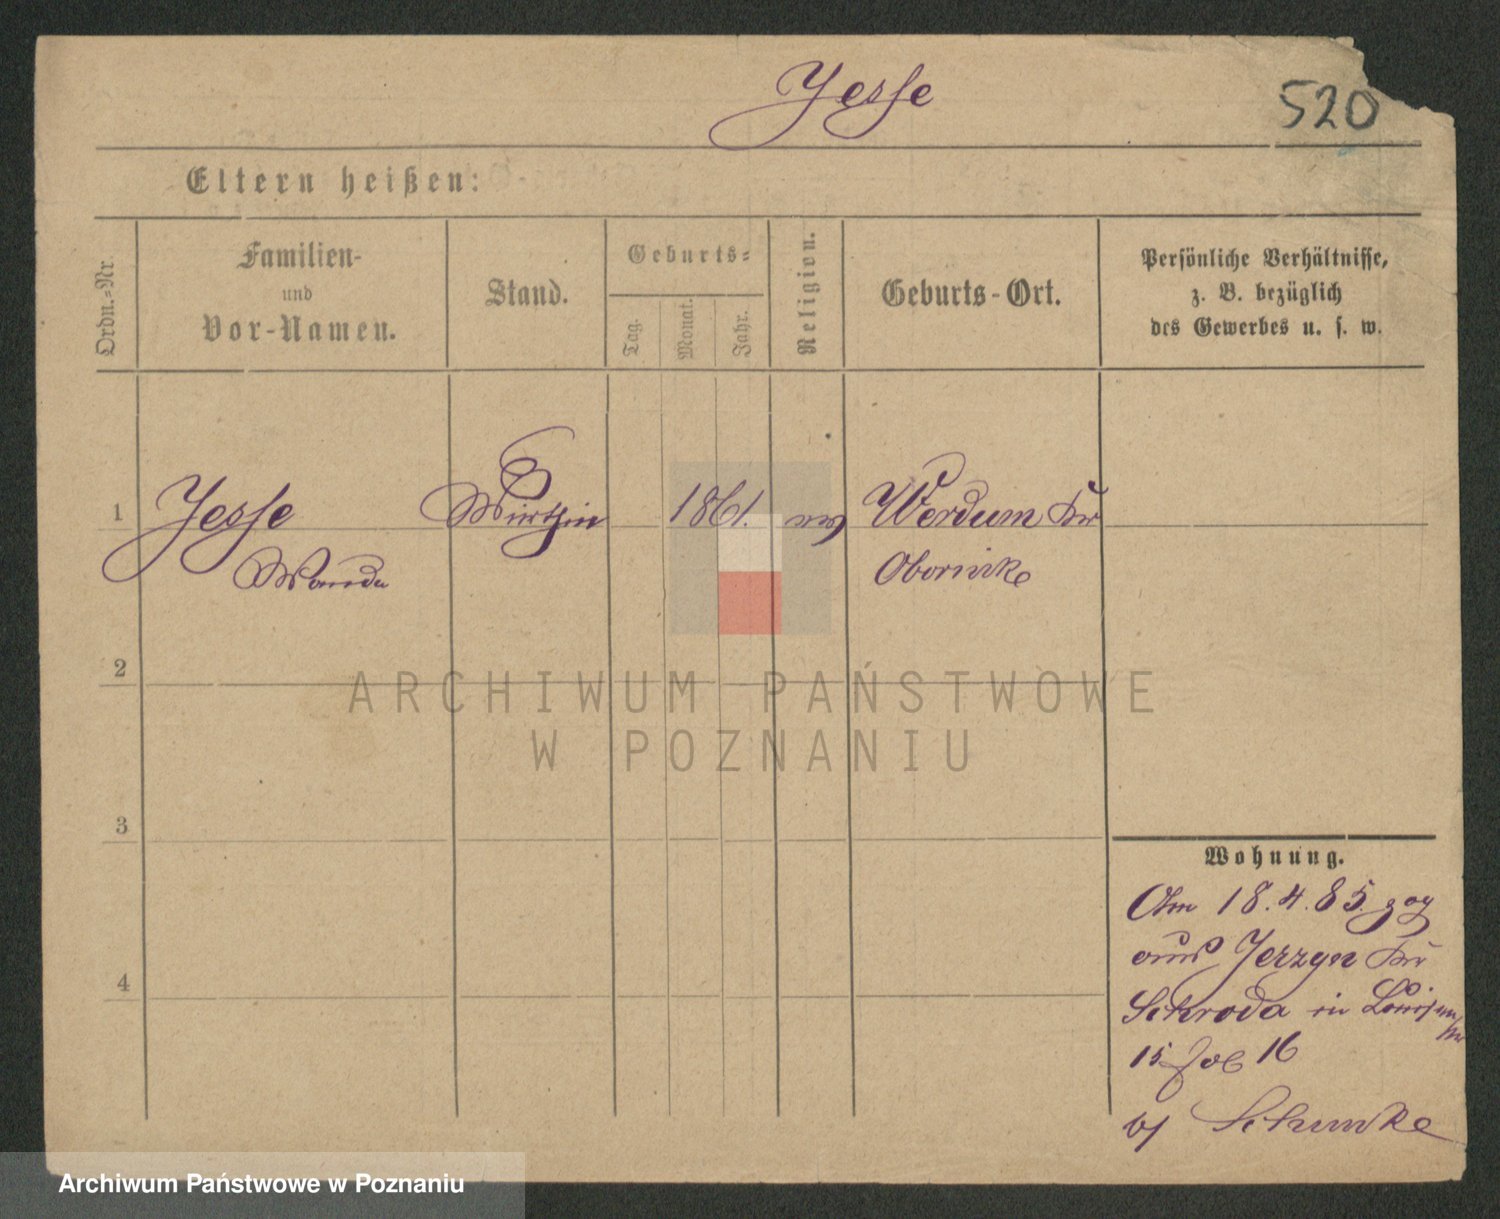 Jesse
520
Eltern heißen:
Ordn.-Nr.
Familien-
und
Vor-Namen.
Stand.
Geburts-
Tag.
Monat.
Jahr.
Religion.
Geburts-Ort.
Persönliche Verhältnisse,
z. B. bezüglich
des Gewerbes u. s. w.
1 Jesse Wirthin 1861. ev Werdum Kr
Wanda Obornik
2
3
4
ARCHIWUM PAŃSTWOWE
W POZNANIU
Wohnung.
Am 18.4.85. zog
aus Jerzyn Kr
Schroda in Louisen
15 16
b/ Schunke
Archiwum Państwowe w Poznaniu